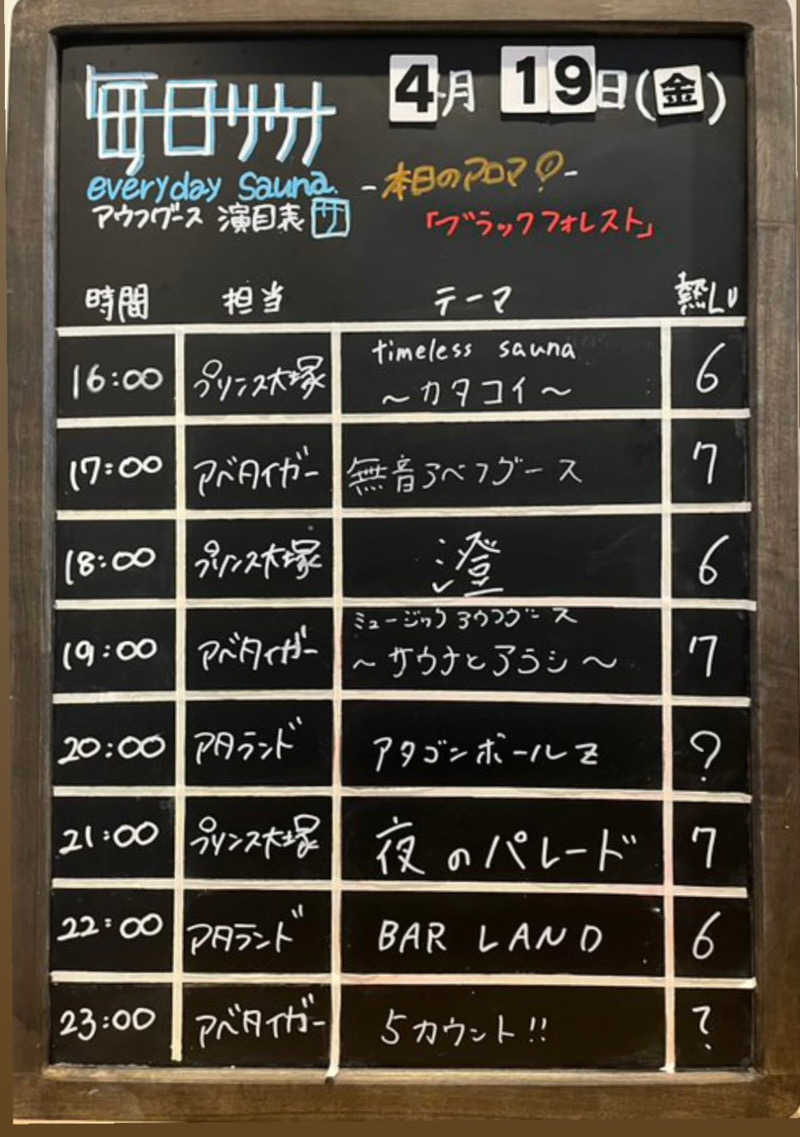 毎日サウナ
4月19日(金)
everyday sauna.
-本日のアロマ-
アウフグース 演目表 サ
「ブラックフォレスト」
時間 担当 テーマ 熱Lv
16:00 プリンス大塚 timeless sauna 6
～カタコイ～
17:00 アベタイガー 無音アベフグース 7
18:00 プリンス大塚 澄 6
ミュージックアウフグース
19:00 アベタイガー ～サウナとアラシ～ 7
20:00 アタランド アタゴンボールZ ?
21:00 プリンス大塚 夜のパレード 7
22:00 アタランド BAR LAND 6
23:00 アベタイガー 5カウント!! ?